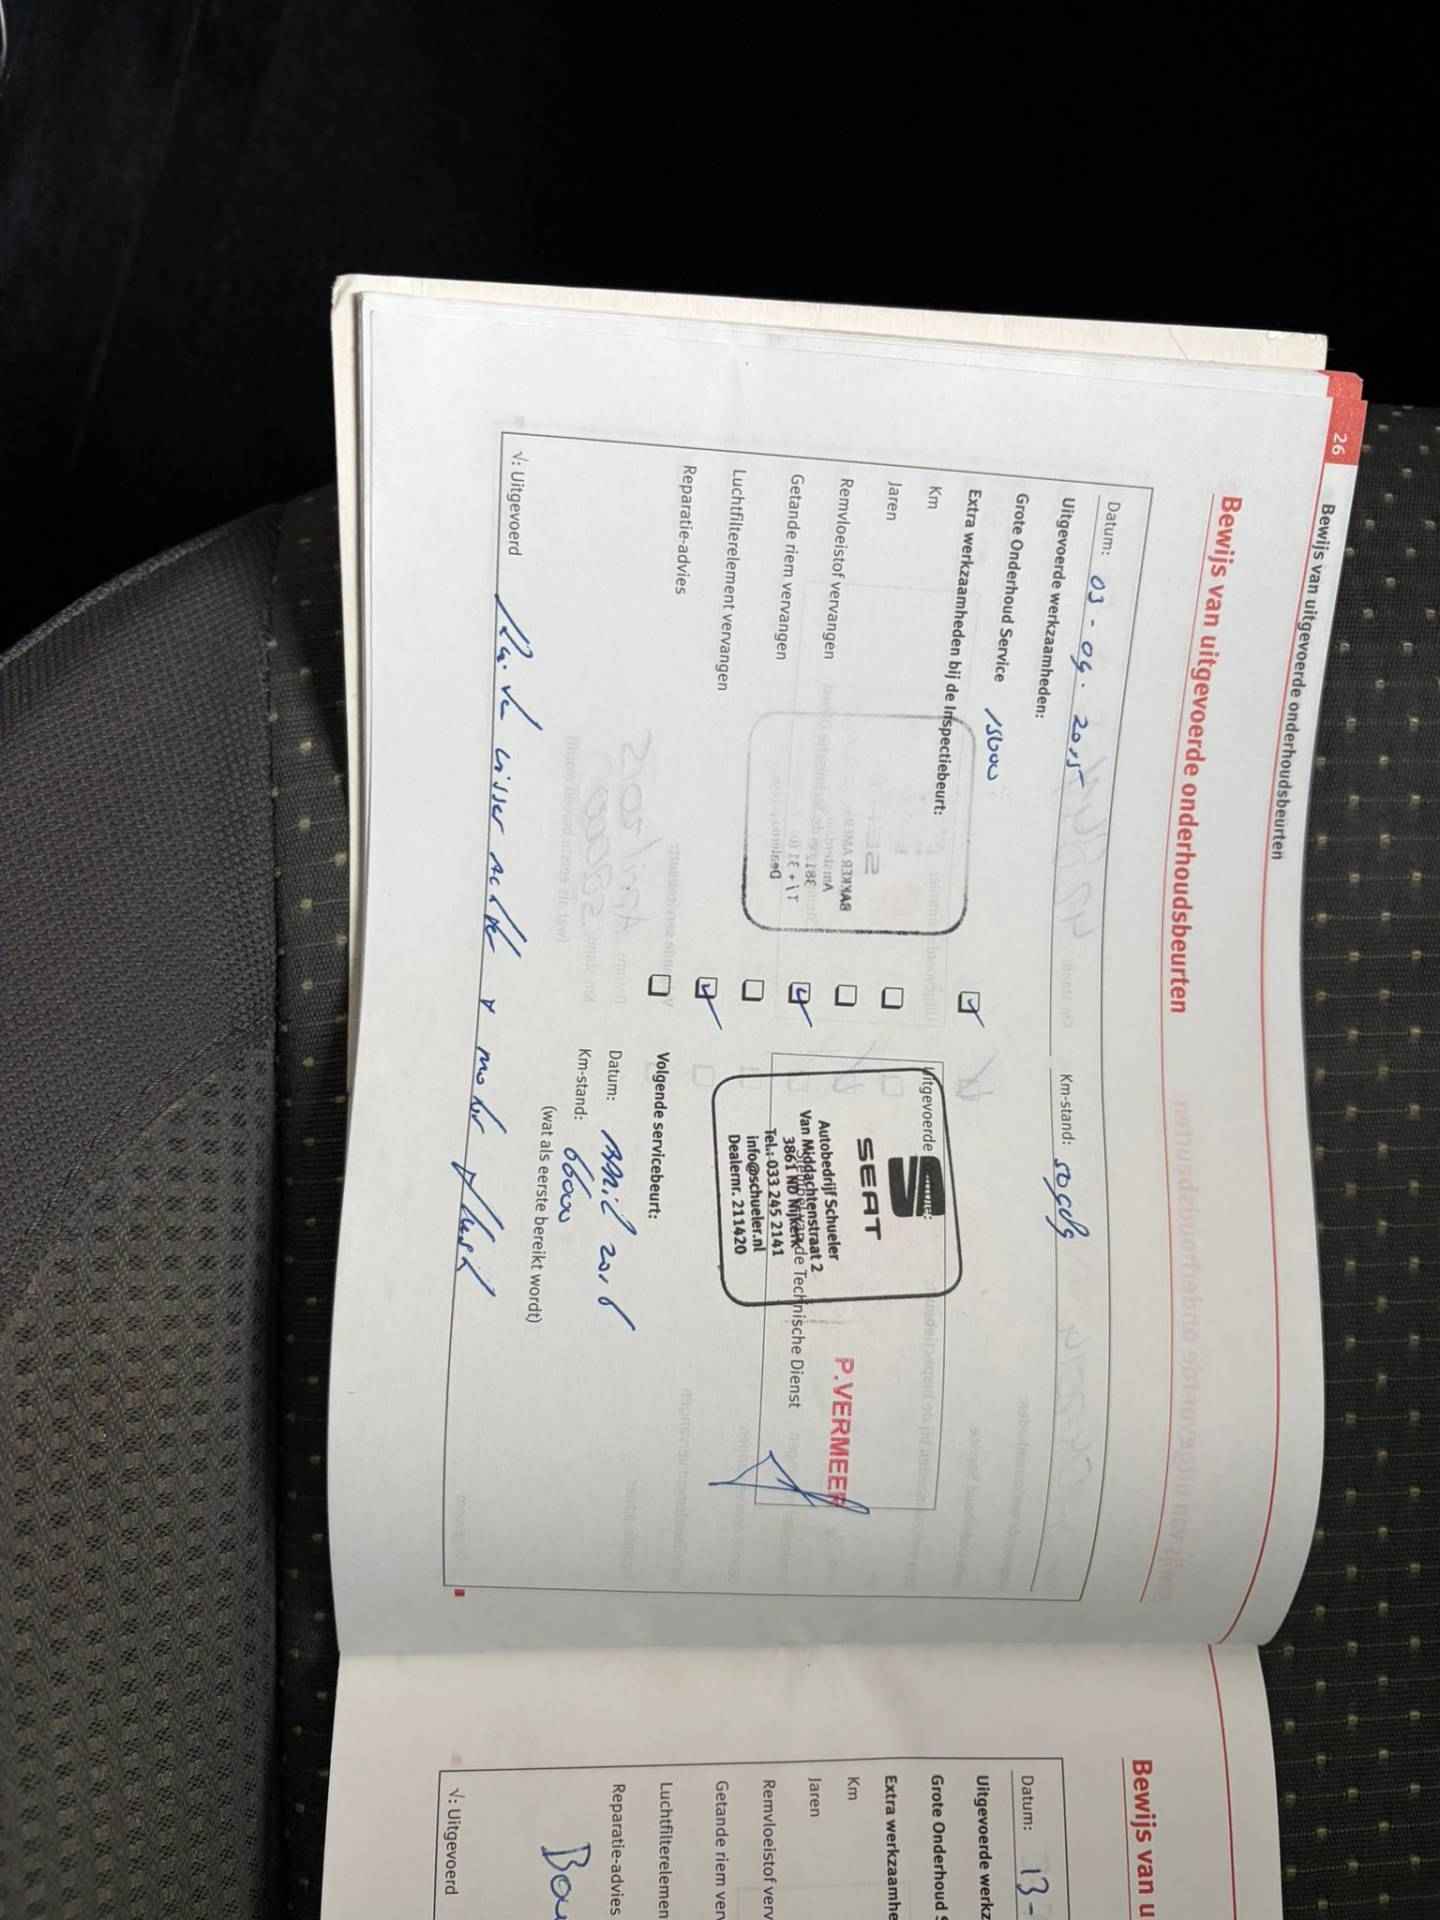 26
Bewijs van uitgevoerde onderhoudsbeurten
Bewijs van uitgevoerde onderhoudsbeurten
Datum: 03-09-2015
Km-stand:
Uitgevoerde werkzaamheden:
Grote Onderhoud Service 15000
Extra werkzaamheden bij de Inspectiebeurt:
Km
Jaren
Remvloeistof vervangen
Getande riem vervangen
Luchtfilterelement vervangen
Reparatie-advies
√: Uitgevoerd
Uitgevoerde
SEAT
Autobedrijf Schueler
Van Middachtenstraat 2
3861 ND Nijkerk
Tel.: 033 245 2141
info@schueler.nl
Dealernr. 211420
de Technische Dienst
P.VERMEER
Volgende servicebeurt:
Datum: April 2016
Km-stand: 66000
(wat als eerste bereikt wordt)
wisser achter + motor
Bewijs van u
Datum: 13-
Uitgevoerde werkz
Grote Onderhoud S
Extra werkzaamhe
Km
Jaren
Remvloeistof verv
Getande riem verv
Luchtfilterelemen
Reparatie-advies
Bou
√: Uitgevoerd